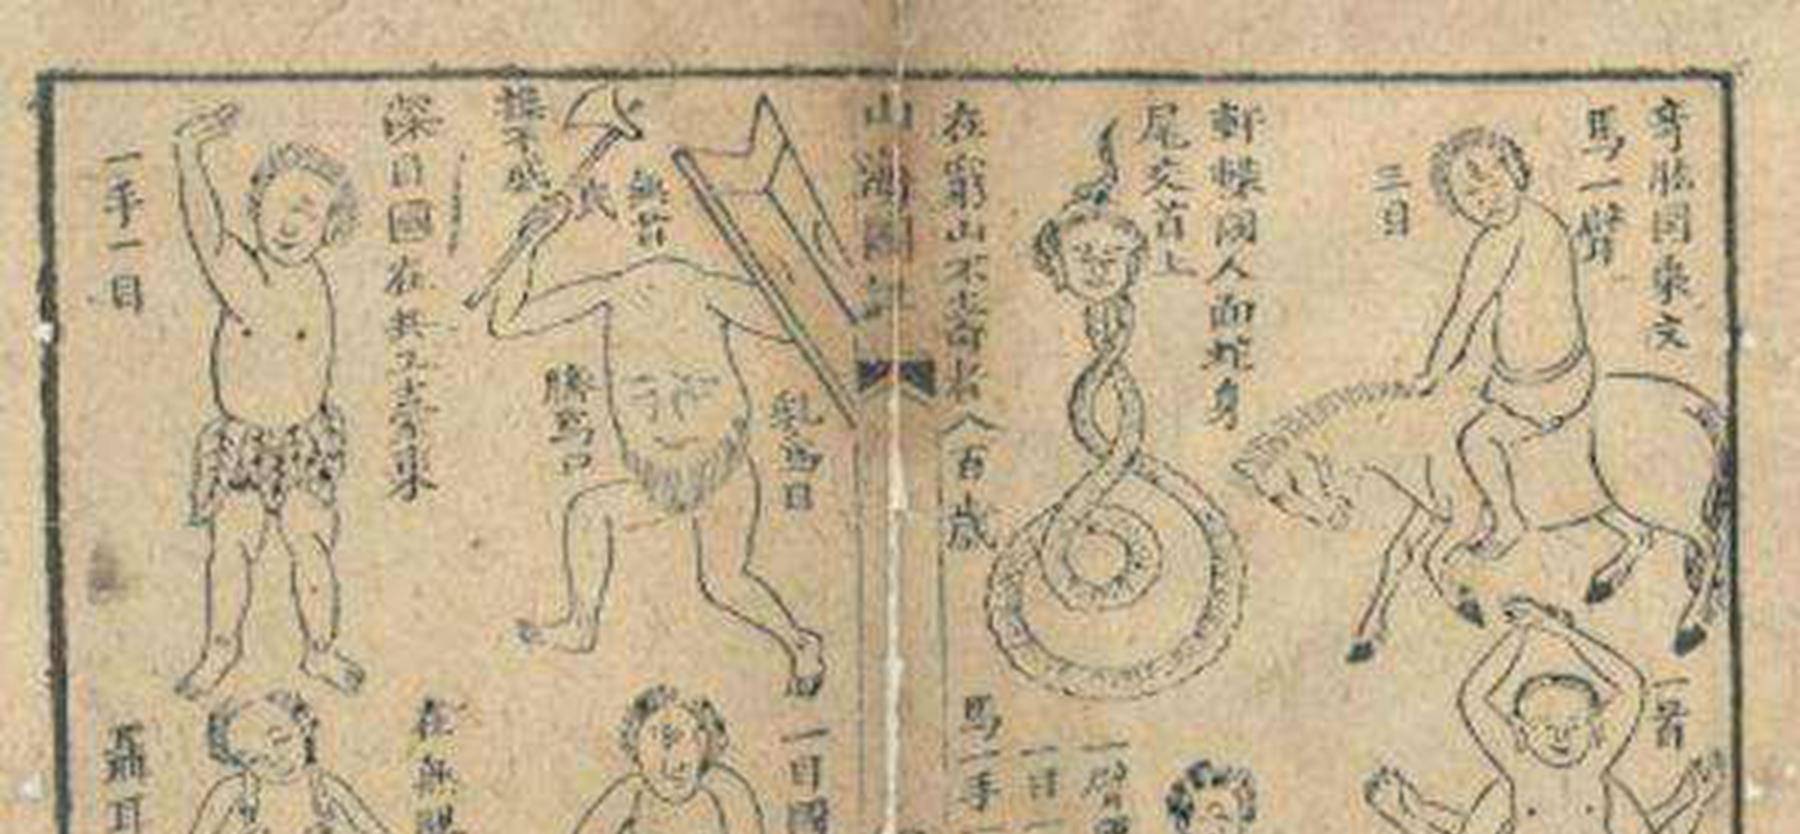 奇肱國乘文
馬一臂
三目
軒轅國人面蛇身
尾交首上
在窮山不壽者
八百歲
山海圖
無首
操干戚
乳爲目
臍爲口
深目國在共工臺東
一手一目
一首
一臂
一目
馬一手
一目國
在無腸
聶耳